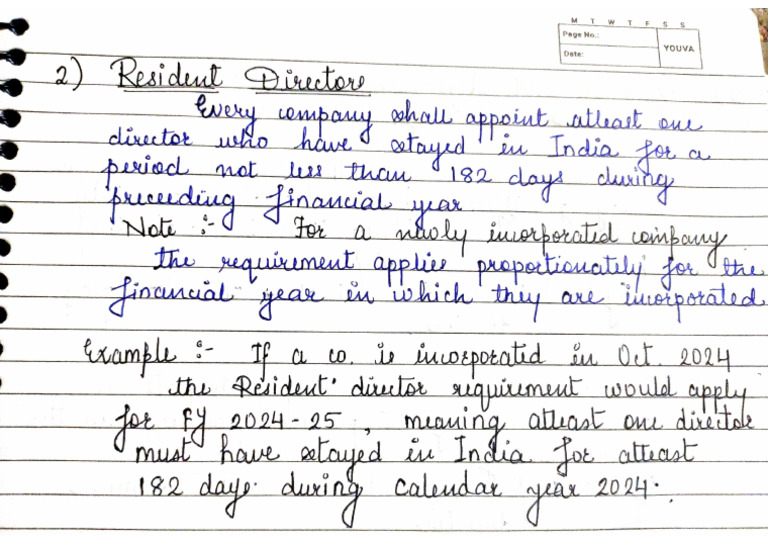 M T W T F S S
Page No.:
Date:
YOUVA
2) Resident Director
Every company shall appoint atleast one
director who have stayed in India for a
period not less than 182 days during
preceeding financial year
Note :- For a newly incorporated company
the requirement applies proportionately for the
financial year in which they are incorporated.
Example :- If a co. is incorporated in Oct. 2024
the Resident director requirement would apply
for FY 2024-25, meaning atleast one director
must have stayed in India for atleast
182 days during calendar year 2024.